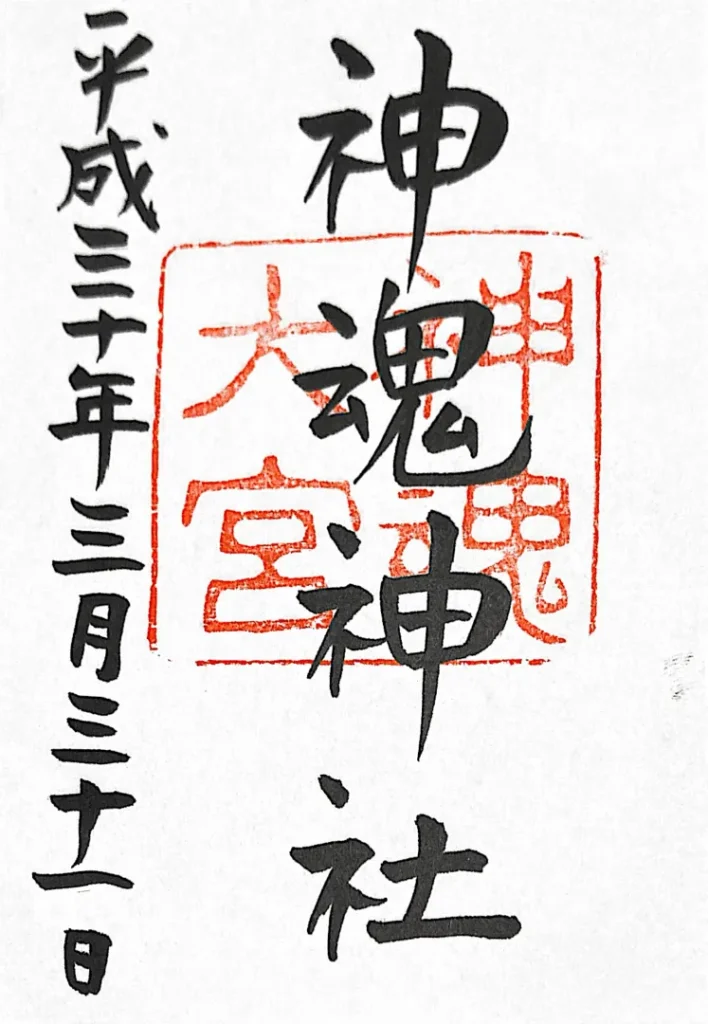 神魂神社
神魂
大宮
平成三十年三月三十一日